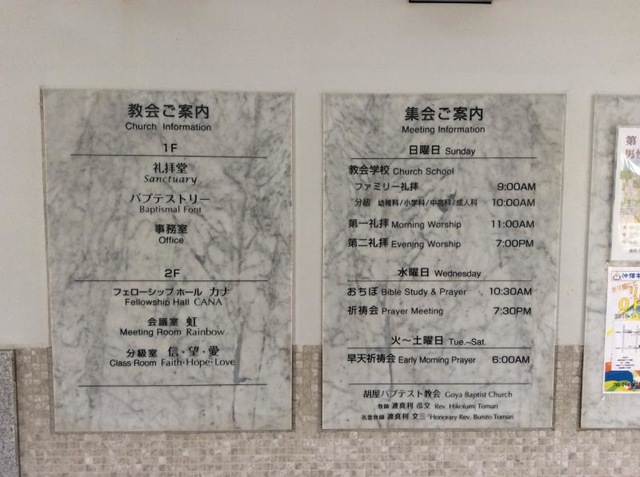 教会ご案内
Church Information
1F
礼拝堂
Sanctuary
バプテストリー
Baptismal Font
事務室
Office
2F
フェローシップ ホール カナ
Fellowship Hall CANA
会議室 虹
Meeting Room Rainbow
分級室 信・望・愛
Class Room Faith・Hope・Love
集会ご案内
Meeting Information
日曜日 Sunday
教会学校 Church School
ファミリー礼拝 9:00AM
分級 幼稚科/小学科/中高科/成人科 10:00AM
第一礼拝 Morning Worship 11:00AM
第二礼拝 Evening Worship 7:00PM
水曜日 Wednesday
おちぼ Bible Study & Prayer 10:30AM
祈祷会 Prayer Meeting 7:30PM
火〜土曜日 Tue.~Sat.
早天祈祷会 Early Morning Prayer 6:00AM
胡屋バプテスト教会 Goya Baptist Church
牧師 渡真利 彦文 Rev. Hikofumi Tomari
名誉牧師 渡真利 文三 Honorary Rev. Bunzo Tomari
第